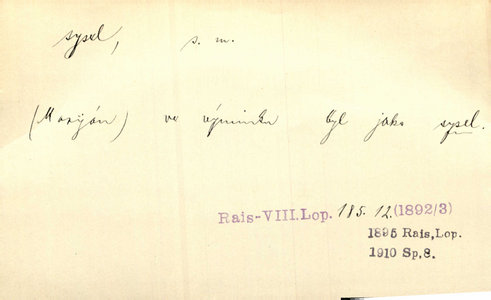 sysel, s. m.
(Maryján) ve výminku byl jako sysel.
Rais-VIII.Lop. 185. 12. (1892/3)
1895 Rais, Lop.
1910 Sp. 8.